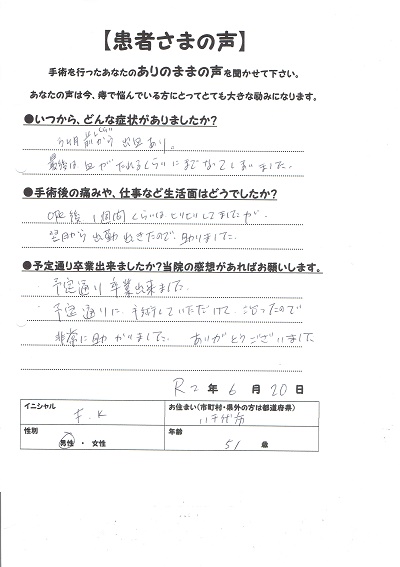 【患者さまの声】
手術を行ったあなたのありのままの声を聞かせて下さい。
あなたの声は今、痔で悩んでいる方にとってとても大きな励みになります。
●いつから、どんな症状がありましたか?
前から 出血あり。
最後は 血がたれるくらいにまでなってしまいました。
●手術後の痛みや、仕事など生活面はどうでしたか?
OP後 1週間くらいはヒリヒリしてましたが、
翌日から出勤出来たので、助りました。
●予定通り卒業出来ましたか?当院の感想があればお願いします。
予定通り卒業出来ました。
予定通りに、手術していただけて、治ったので
非常に助かりました。 ありがとうございました
R2 年 6 月 20 日
イニシャル
お住まい(市町村・県外の方は都道府県)
K
八千代市
性別
年齢
男性 ・ 女性
51 歳